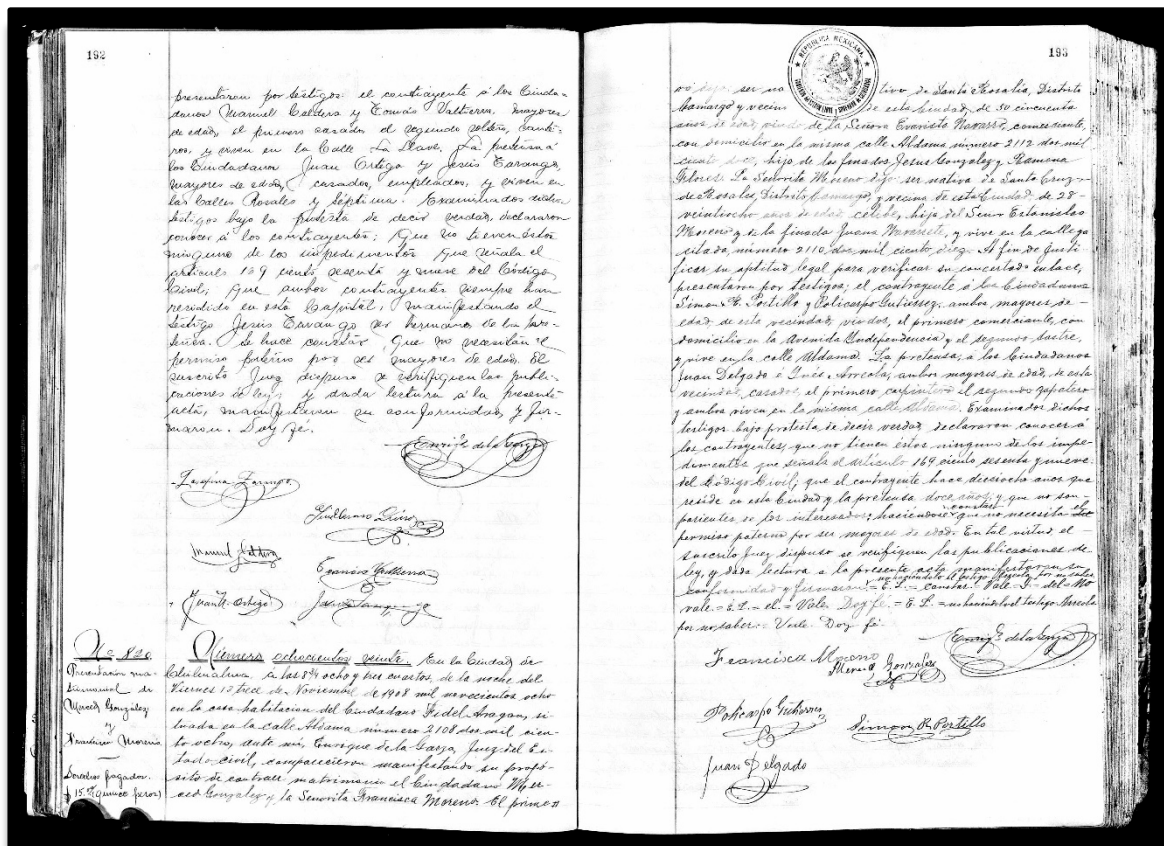 192
presentaron por testigos: el contrayente á los Ciuda-
danos Manuel Caldera y Tomás Valtierra, mayores
de edad, el primero casado, el segundo soltero, cante-
ros, y viven en la Calle La Llave. La pretensa á
los Ciudadanos Juan Ortega y Jesús Tarango,
mayores de edad, casados, empleados, y viven en
las Calles Rosales y Séptima. Examinados
testigos bajo la protesta de decir verdad, declararon
conocer á los contrayentes; Que no tienen éstos
ninguno de los impedimentos que señala el
artículo 169 ciento sesenta y nueve del Código
Civil; que ambos contrayentes siempre han
residido en esta Capital, manifestando el
testigo Jesús Tarango ser hermano de la pre-
tensa. Se hace constar que no necesitan el
permiso paterno por ser mayores de edad. El
suscrito Juez dispuso se verifiquen las publi-
caciones de ley; y dada lectura á la presente
acta, manifestaron su conformidad, y fir-
maron. Doy fé.
Enriq. de la Garza
Manuel Caldera
Juan N. Ortega
No. 820
Presentacion ma-
trimonial de
Merced González
y
Francisca Moreno
Derechos pagados.
$15.00 quince pesos)
Número ochocientos veinte. En la Ciudad de
Chihuahua, a las 8 3/4 ocho y tres cuartos, de la noche del
Viernes 13 trece de Noviembre de 1908 mil novecientos ocho
en la casa habitacion del Ciudadano Fidel Aragon, si-
tuada en la calle Aldama número 2108 dos mil cien-
to ocho, ante mi, Enrique de la Garza, Juez del Es-
tado civil, comparecieron manifestando su propó-
sito de contraer matrimonio el Ciudadano Mer-
ced Gonzalez y la Señorita Francisca Moreno. El prime-
193
REPÚBLICA MEXICANA
ro dijo: ser na tivo de Santa Rosalía, Distrito
Camargo y vecino de esta Ciudad, de 50 cincuenta
años de edad, viudo de la Señora Evarista Navarro, comerciante,
con domicilio en la misma calle Aldama número 2112 dos mil
ciento doce, hijo de los finados Jesus Gonzalez y Ramona
Flores. La Señorita Moreno dijo: ser nativa de Santa Cruz
de Rosales, Distrito Camargo, y vecina de esta Ciudad, de 28-
veintiocho años de edad, célibe, hija del Señor Estanislao
Moreno y de la finada Juana Navarrete, y vive en la calle ya
citada, número 2110 dos mil ciento diez. A fin de justi-
ficar su aptitud legal para verificar su concertado enlace,
presentaron por testigos; el contrayente á los Ciudadanos
Simon R. Portillo y Policarpo Gutiérrez, ambos mayores de-
edad, de esta vecindad, viudos, el primero comerciante, con
domicilio en la Avenida Independencia y el segundo sastre,
y vive en la calle Aldama. La pretensa, a los Ciudadanos
Juan Delgado é Inés Arreola, ambos mayores de edad, de esta
vecindad, casados, el primero carpintero el segundo zapatero
y ambos viven en la misma calle Aldama. Examinados dichos
testigos bajo protesta de decir verdad, declararon conocer á
los contrayentes; que no tienen éstos ninguno de los impe-
dimentos que señala el artículo 169 ciento sesenta y nueve
del Código Civil, que el contrayente hace dieciocho años que
reside en esta Ciudad y la pretensa doce años; y que no son-
parientes los interesados; haciendose constar que no necesita
permiso paterno por ser mayores de edad. En tal virtud, el
suscrito Juez dispuso se verifiquen las publicaciones de
ley, y dada lectura a la presente acta manifestaron su
no haciéndolo el testigo Arreola por no saber
conformidad y firmaron. = E. L. = constar = Vale = T. = del = No
vale. = E. L. = el = Vale. Doy fe. = E. L. = no haciéndolo el testigo Arreola
por no saber. = Vale. Doy fé.
Enriq. de la Garza
Francisca Moreno
Merced Gonzales
Policarpo Gutierres
Simon R. Portillo
Juan Delgado